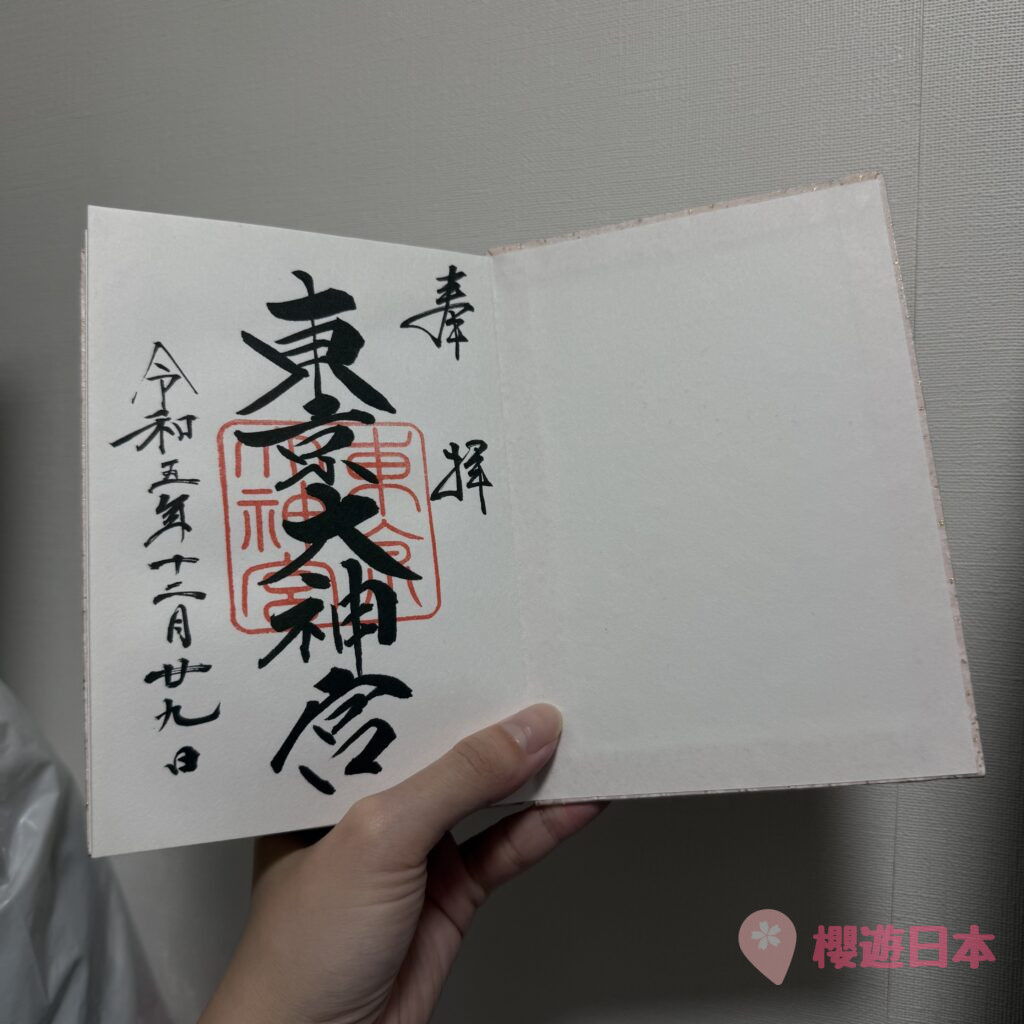 奉拝
東京大神宮
東京大神宮
令和五年十二月廿九日
櫻遊日本